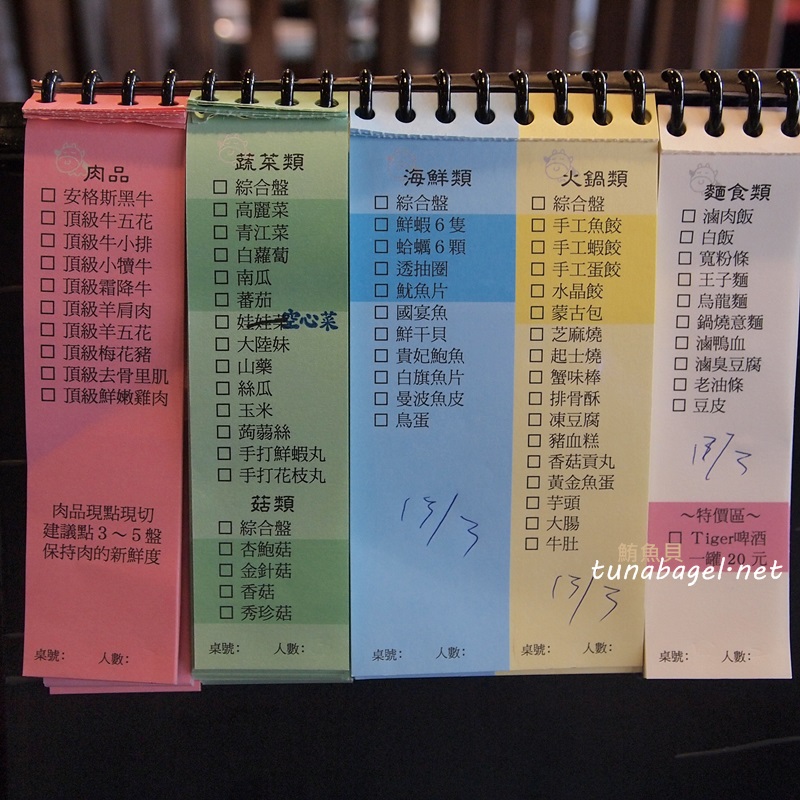 肉品
□ 安格斯黑牛
□ 頂級牛五花
□ 頂級牛小排
□ 頂級小犢牛
□ 頂級霜降牛
□ 頂級羊肩肉
□ 頂級羊五花
□ 頂級梅花豬
□ 頂級去骨里肌
□ 頂級鮮嫩雞肉
肉品現點現切
建議點3～5盤
保持肉的新鮮度
桌號: 人數:
蔬菜類
□ 綜合盤
□ 高麗菜
□ 青江菜
□ 白蘿蔔
□ 南瓜
□ 蕃茄
□ 娃娃菜 空心菜
□ 大陸妹
□ 山藥
□ 絲瓜
□ 玉米
□ 蒟蒻絲
□ 手打鮮蝦丸
□ 手打花枝丸
菇類
□ 綜合盤
□ 杏鮑菇
□ 金針菇
□ 香菇
□ 秀珍菇
桌號: 人數:
海鮮類
□ 綜合盤
□ 鮮蝦6隻
□ 蛤蠣6顆
□ 透抽圈
□ 魷魚片
□ 國宴魚
□ 鮮干貝
□ 貴妃鮑魚
□ 白旗魚片
□ 曼波魚皮
□ 鳥蛋
13/3
桌號: 人數:
火鍋類
□ 綜合盤
□ 手工魚餃
□ 手工蝦餃
□ 手工蛋餃
□ 水晶餃
□ 蒙古包
□ 芝麻燒
□ 起士燒
□ 蟹味棒
□ 排骨酥
□ 凍豆腐
□ 豬血糕
□ 香菇貢丸
□ 黃金魚蛋
□ 芋頭
□ 大腸
□ 牛肚
13/3
桌號: 人數:
麵食類
□ 滷肉飯
□ 白飯
□ 寬粉條
□ 王子麵
□ 烏龍麵
□ 鍋燒意麵
□ 滷鴨血
□ 滷臭豆腐
□ 老油條
□ 豆皮
13/3
～特價區～
□ Tiger啤酒
一罐20元
桌號: 人數:
鮪魚貝
tunabagel.net